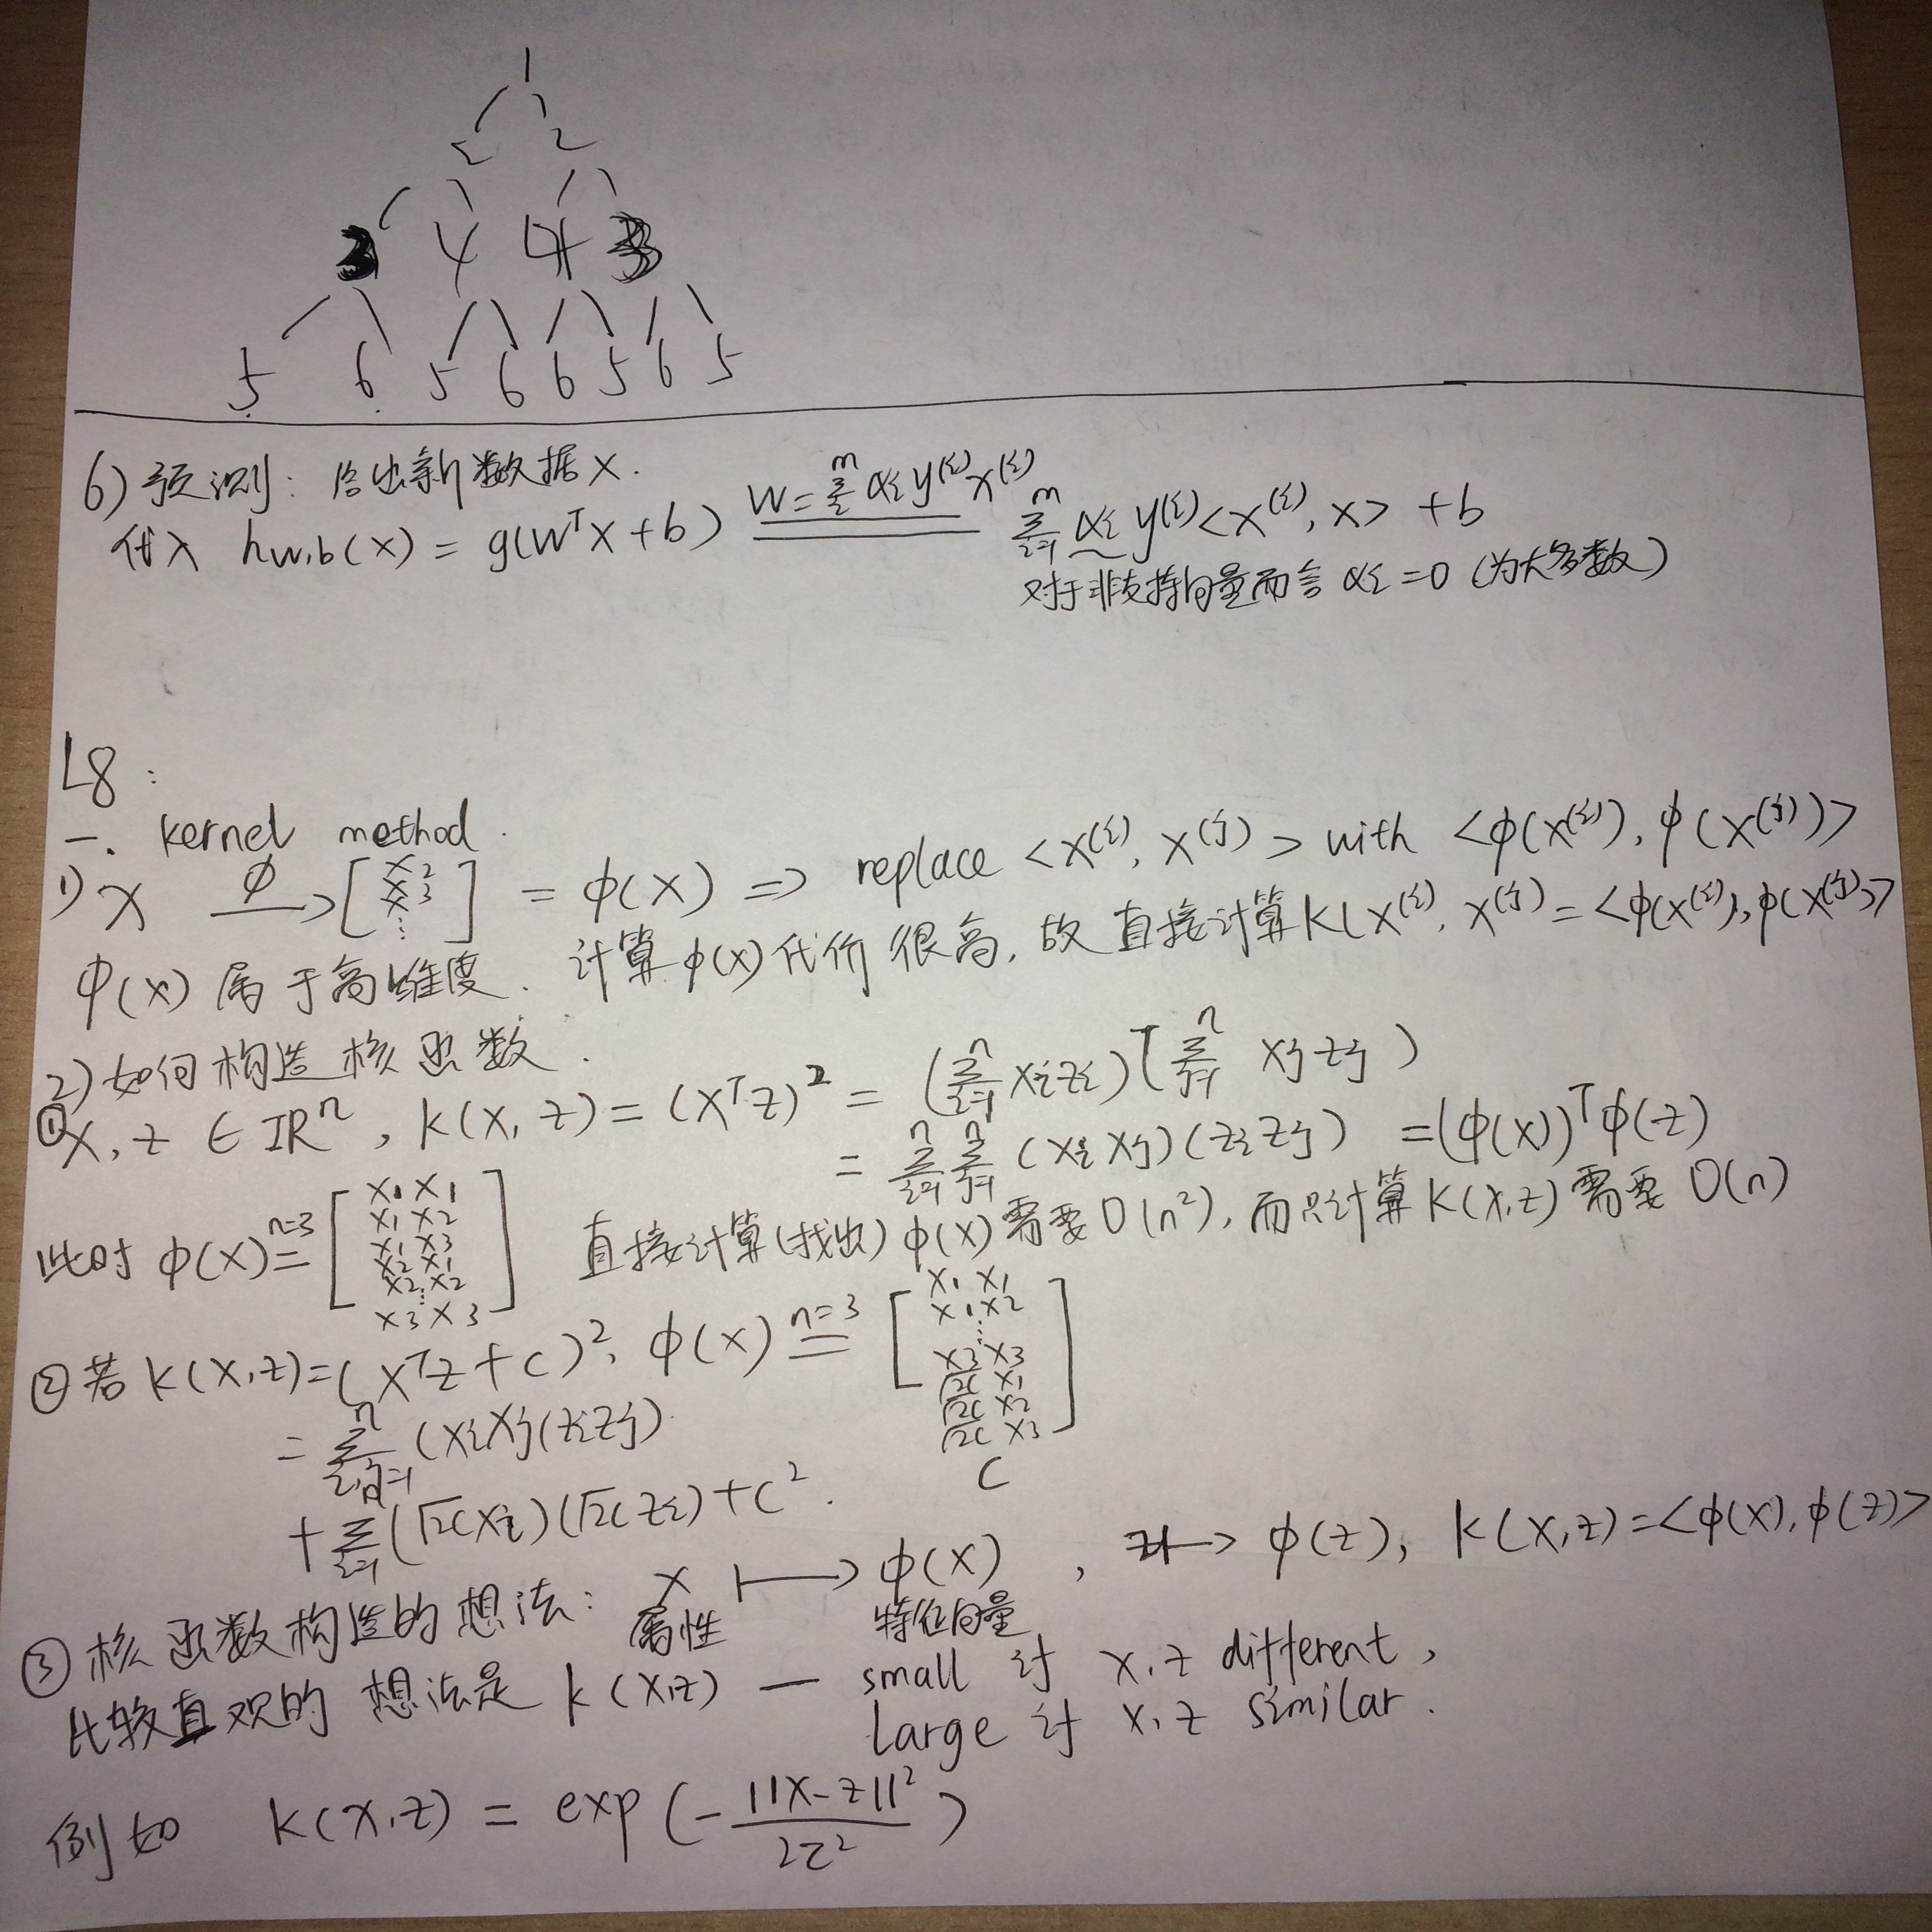 1
2 2
3 4 4 3
5 6 5 6 6 5 6 5
6) 预测: 给出新数据X.
代入 hw,b(x) = g(wᵀx+b) W=Σᵐ αi y⁽ⁱ⁾ x⁽ⁱ⁾ Σᵐi=1 αi y⁽ⁱ⁾<x⁽ⁱ⁾, x> +b
对于非支持向量而言 αi=0 (为大多数)
L8:
一. kernel method.
1) X →ϕ [X X2 X3 ⋮] = ϕ(X) => replace <X⁽ⁱ⁾, X⁽ʲ⁾> with <ϕ(X⁽ⁱ⁾), ϕ(X⁽ʲ⁾)>
ϕ(x) 属于高维度. 计算ϕ(x)代价很高, 故直接计算K(X⁽ⁱ⁾, X⁽ʲ⁾=<ϕ(X⁽ⁱ⁾), ϕ(X⁽ʲ⁾>
2) 如何构造核函数.
① X, z ∈ IRⁿ, K(X, z) = (Xᵀz)² = (Σⁿi=1 xizi)(Σⁿj=1 xjzj)
= Σⁿi=1 Σⁿj=1 (xixj)(zizj) = (ϕ(x))ᵀϕ(z)
此时 ϕ(x) n=3 = [X1X1 X1X2 X1X3 X2X1 X2X2 ⋮ X3X3] 直接计算(找出)ϕ(x)需要O(n²), 而只计算K(X,z)需要O(n)
② 若 K(X,z)=(Xᵀz+c)², ϕ(x) n=3 = [X1X1 X1X2 ⋮ X3X3 √2c X1 √2c X2 √2c X3 C]
= Σⁿi,j=1 (xixj(zizj)
+ Σi=1 (√2c xi)(√2c zi)+c².
③ 核函数构造的想法: X ↦ ϕ(X), z ↦ ϕ(z), K(X,z)=<ϕ(x), ϕ(z)>
属性 特征向量
比较直观的想法是 K(x,z) — small if X,z different,
Large if X,z similar.
例如 K(X,z) = exp(-||X-z||²/2τ²)